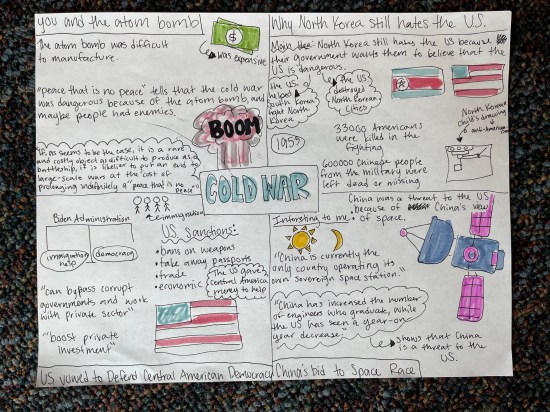 you and the atom bomb
The atom bomb was difficult
to manufacture.
$
was expensive
"peace that is no peace" tells that the cold war
was dangerous because of the atom bomb, and
maybe people had enemies.
"If, as seems to be the case, it is a rare
and costly object as difficult to produce as a
battleship, it is likelier to put an end to
large-scale wars at the cost of
prolonging indefinitely a "peace that is no
peace"
BOOM
COLD WAR
Why North Korea still hates the U.S.
North Korea still hates the US because
their government wants them to believe that the
US is dangerous.
the US
helped
South Korea
fight North
Korea
the US
destroyed
North Korean
cities
North Korean
child's drawing
anti-American
1953
33000 Americans
were killed in the
fighting
600000 Chinese people
from the military were
left dead or missing
Biden Administration
immigration
help
democracy
immigration
US sanctions:
bans on weapons
take away passports
trade
economic
The US gave
central America
money to help
"can bypass corrupt
governments and work
with private sector"
"boost private
investment"
US vowed to Defend Central American Democracy
China was a threat to the US
because of China's view
of space.
Interesting to me
"China is currently the
only country operating its
own sovereign space station."
"China has increased the number
of engineers who graduate, while
the US has seen a year-on-
year decrease"
shows that China
is a threat to the
U.S.
China's bid to Space Race